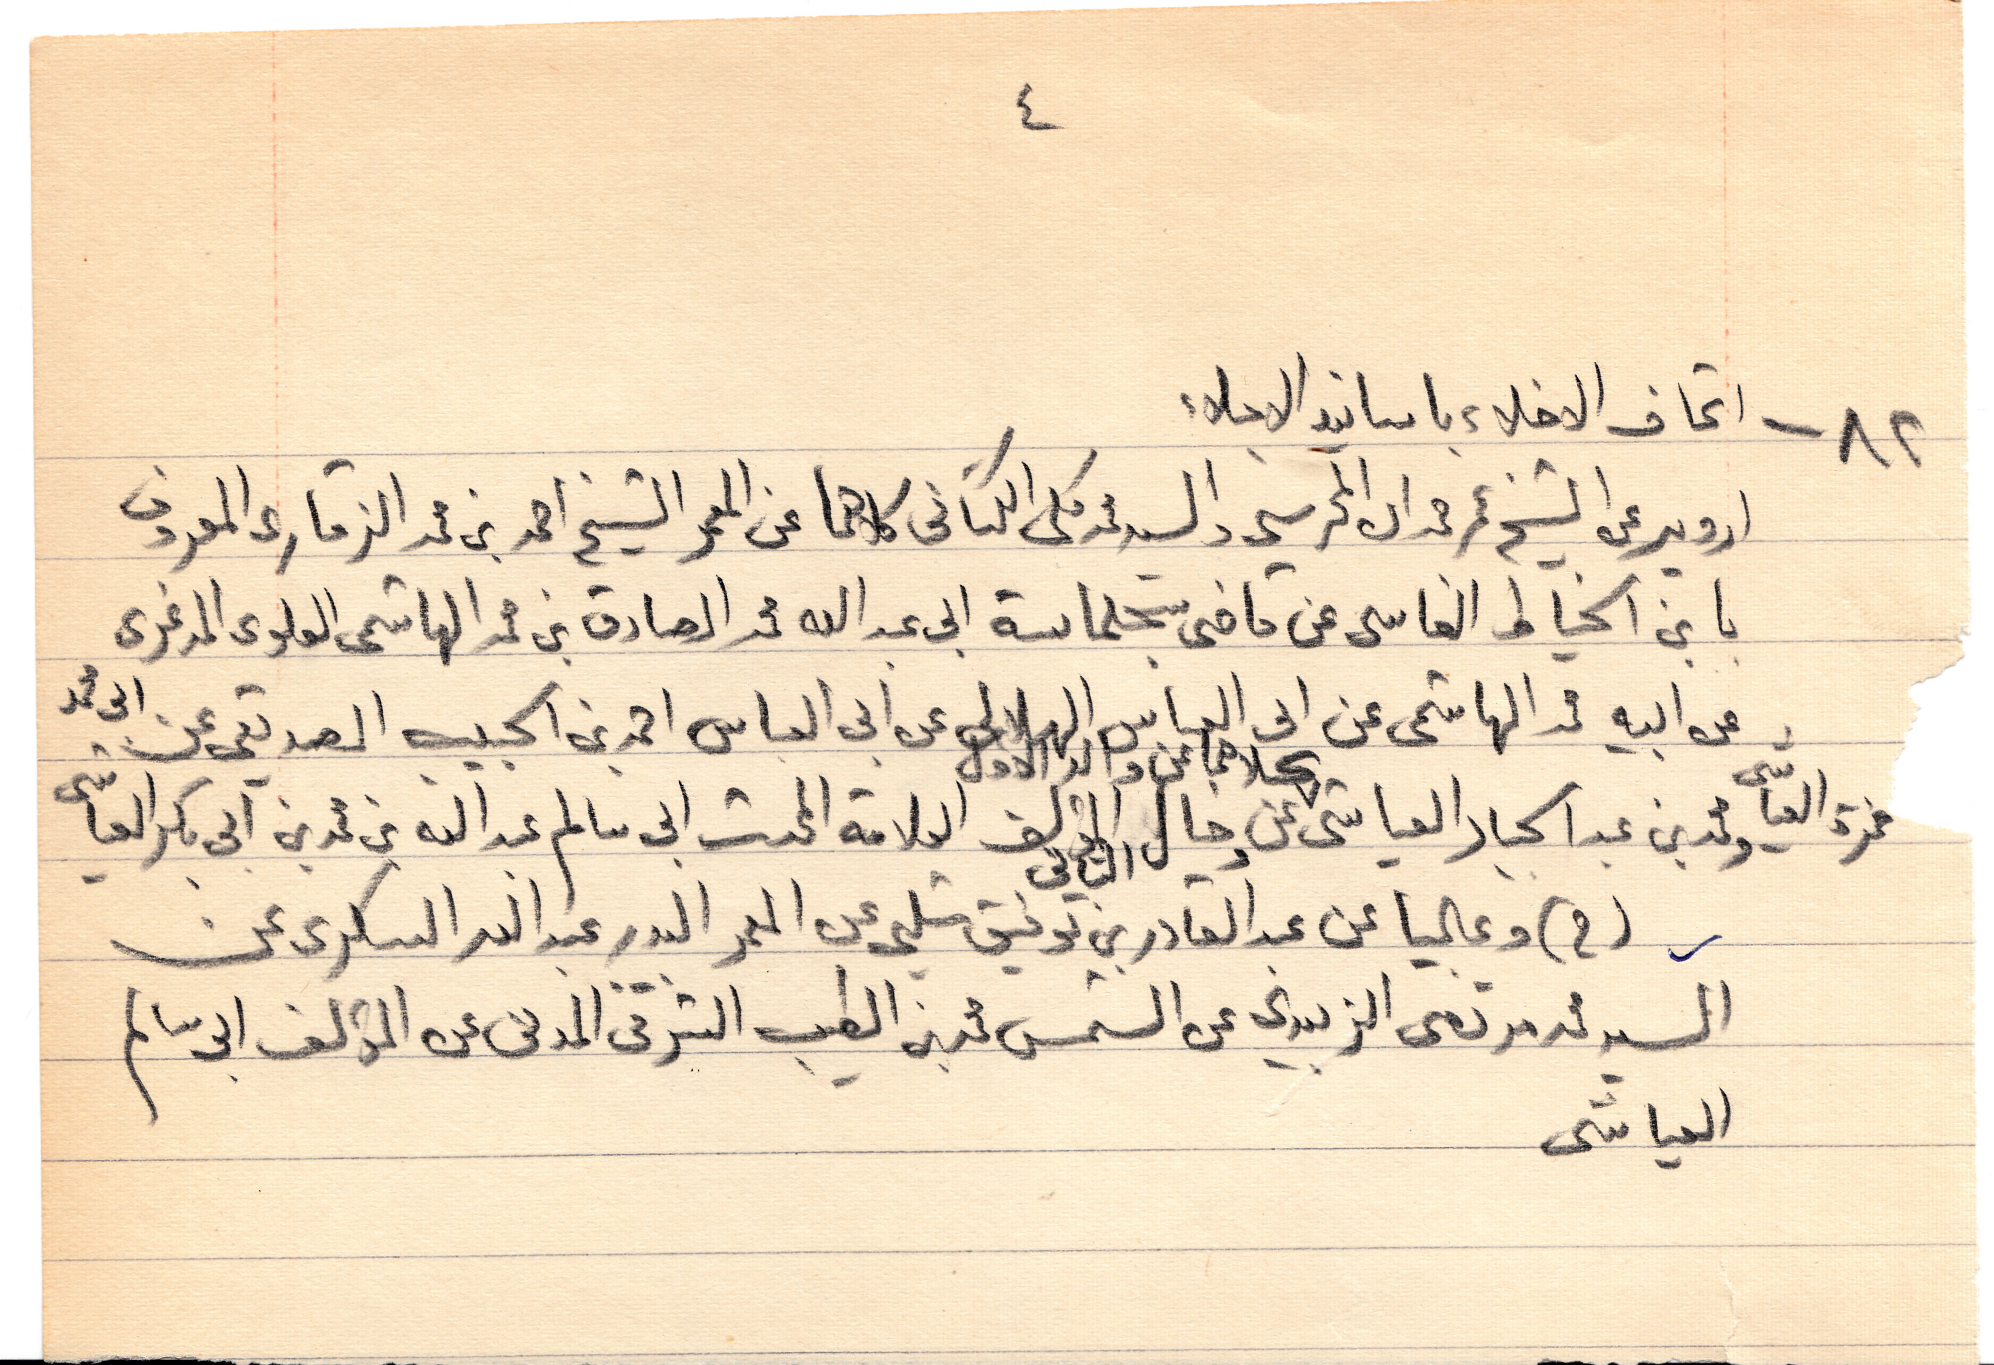 ٤
٨٢ - اتحاف الاخلاء باسانيد الاجلاء
ارويه عن الشيخ عمر حمدان المحرسي والسيد محمد مكي الكتاني كلاهما عن المعمر الشيخ احمد بن محمد الزقاري المعروف
بابن الخياط الفاسي عن قاضي سجلماسة ابي عبد الله محمد الصادق بن محمد الهاشمي العلوي المدغري
عن ابيه محمد الهاشمي عن ابي العباس الهلالي عن ابي العباس احمد بن الحبيب الصديقي عن ابي محمد
حمزة العياشي ومحمد بن عبد الجبار العياشي كلاهما عن والد الاول وخال الثاني المؤلف العلامة المحدث ابي سالم عبد الله بن محمد بن ابي بكر العياشي
(ح) وعاليا عن عبد القادر بن توفيق شلبي عن المعمر البدر عبد الله السكري عن
السيد محمد مرتضى الزبيدي عن الشمس محمد بن الطيب الشرقي المدني عن المؤلف ابي سالم
العياشي